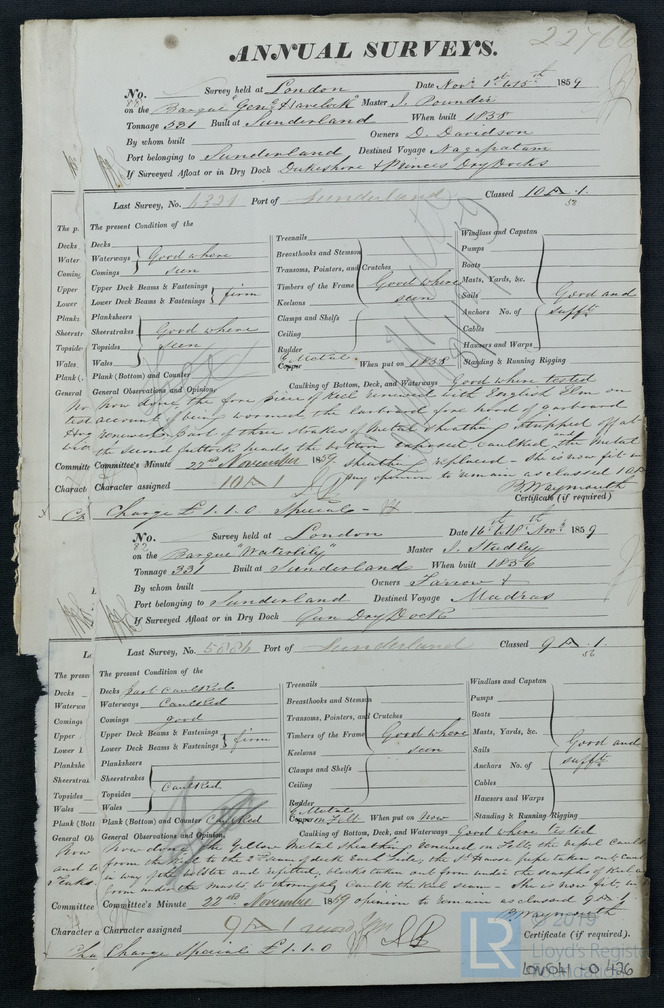 22766
ANNUAL SURVEYS.
No. Survey held at London Date Novr. 1st & 15th 1859
on the Barque "Genl. Havelock" Master J. Pounder
Tonnage 331 Built at Sunderland When built 1838
By whom built Owners D. Davidson
Port belonging to Sunderland Destined Voyage Nagapatam
If Surveyed Afloat or in Dry Dock Dukeshore & Princes Dry Docks
Last Survey, No. 4321 Port of Sunderland Classed 10 A. 1
The present Condition of the
Decks
Waterways Good where
Comings seen
Upper Deck Beams & Fastenings firm
Lower Deck Beams & Fastenings
Planksheers
Sheerstrakes Good where
Topsides seen
Wales
Plank (Bottom) and Counter
Treenails
Breasthooks and Stemson
Transoms, Pointers, and Crutches
Timbers of the Frame Good where
Keelsons seen
Clamps and Shelfs
Ceiling
Rudder
Y. Metal
Copper When put on 1858
Windlass and Capstan
Pumps
Boats
Masts, Yards, &c.
Sails Good and
Anchors No. of sufft
Cables
Hawsers and Warps
Standing & Running Rigging
General Observations and Opinion, Caulking of Bottom, Deck, and Waterways Good where tested
Now done, the fore piece of keel renewed with English Elm on
account of being wormed, the larboard fore hood of garboard
renewed, part of three strakes of Metal sheathing stripped off at
the second futtocks heads, the bottom exposed, caulked and the Metal
Sheathing replaced - She is now fit in
my opinion to remain as classed 10 A 1
Committee's Minute 22nd November 1859
B. Waymouth
Character assigned 10 A 1
Certificate (if required)
Charge £1.1.0 Special -
No. Survey held at London Date 16th & 18th Novr. 1859
82 on the Barque "Waterlily" Master J. Studley
Tonnage 331 Built at Sunderland When built 1836
By whom built Owners Farrow &
Port belonging to Sunderland Destined Voyage Madras
If Surveyed Afloat or in Dry Dock Gun Dry Dock
Last Survey, No. Port of Sunderland Classed 9 A. 1.
The present Condition of the
Decks part Caulked
Waterways Caulked
Comings good
Upper Deck Beams & Fastenings firm
Lower Deck Beams & Fastenings
Planksheers
Sheerstrakes
Topsides Caulked
Wales
Plank (Bottom) and Counter Caulked
Treenails
Breasthooks and Stemson
Transoms, Pointers, and Crutches
Timbers of the Frame Good where
Keelsons seen
Clamps and Shelfs
Ceiling
Rudder
Y. Metal
Copper on Felt When put on Now
Windlass and Capstan
Pumps
Boats
Masts, Yards, &c.
Sails Good and
Anchors No. of sufft
Cables
Hawsers and Warps
Standing & Running Rigging
General Observations and Opinion, Caulking of Bottom, Deck, and Waterways Good where tested
Now done, the Yellow Metal Sheathing renewed on Felt, the vessel Caulked
from the keel to the 2nd seam of deck each side, the Hawse pipe taken out & Caulked
in way of the bolster and refitted, blocks taken out from under the scarphs of keel and
from under the masts to thoroughly Caulk the keel seam - She is now fit in
opinion to remain as classed 9 A 1
Committee's Minute 22nd November 1859
B. Waymouth
Character assigned 9 A 1
Certificate (if required).
Charge Special £1.1.0
LR
© 2019
Lloyd's Register
Foundation
LOVO41-0426